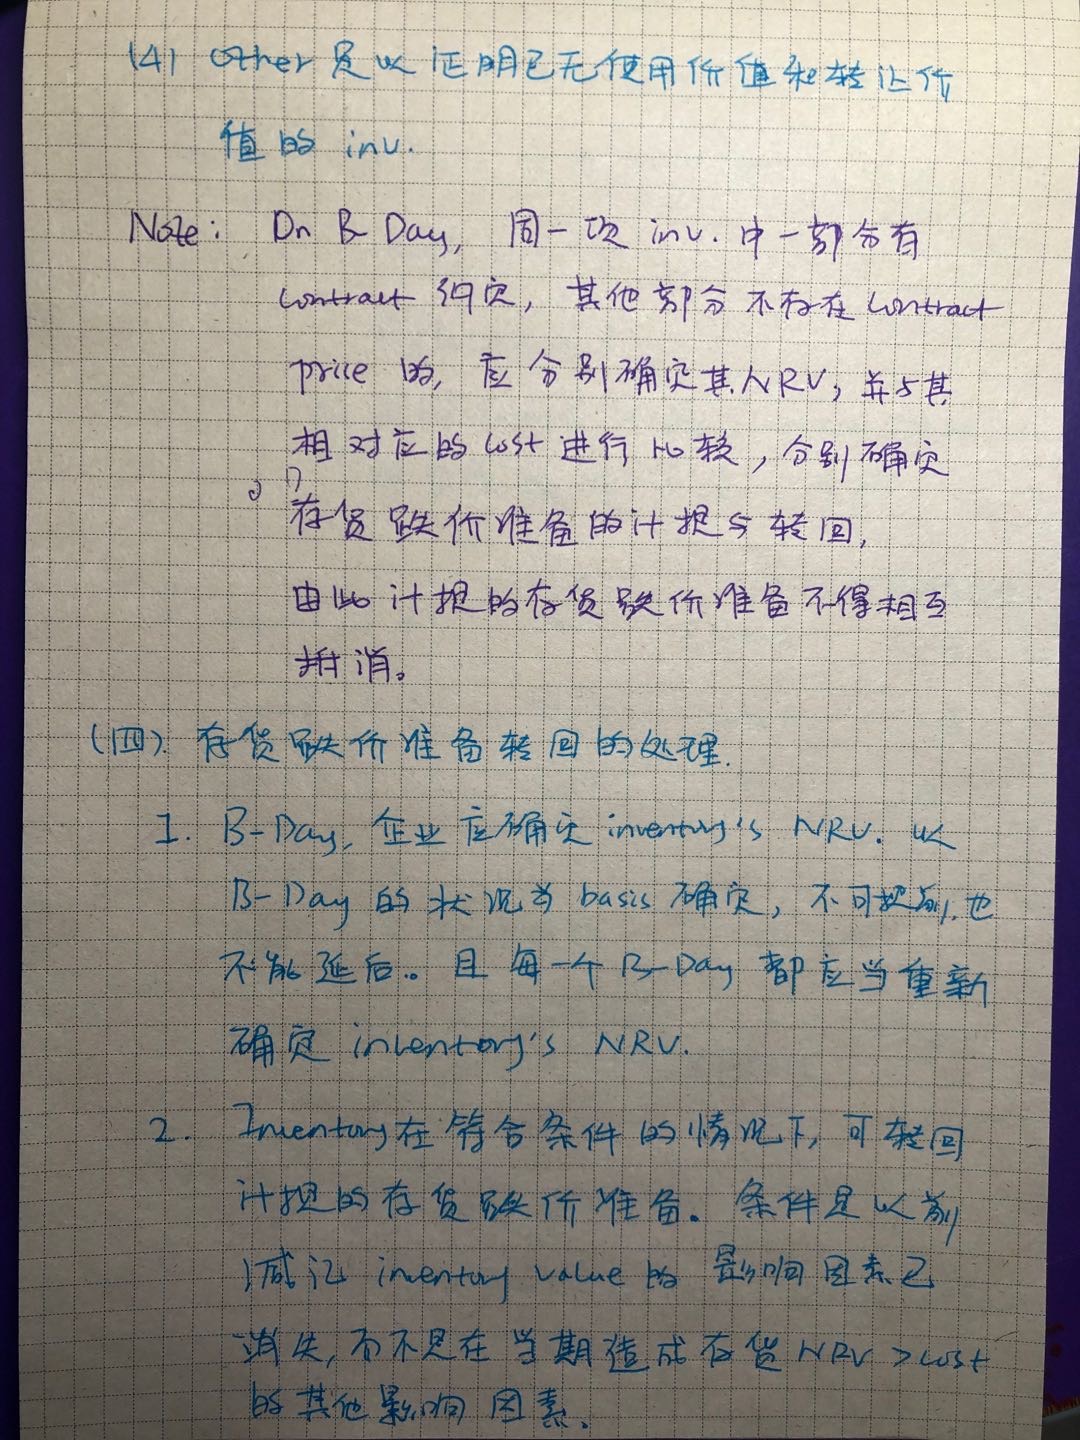 (4) Other 足以证明已无使用价值和转让价
值的 inv.
Note: On B-Day, 同一项 inv. 中一部分有
contract 约定, 其他部分不存在 contract
price 的, 应分别确定其NRV, 并与其
相对应的 cost 进行比较, 分别确定
存货跌价准备的计提与转回,
由此计提的存货跌价准备不得相互
抵消。
(四) 存货跌价准备转回的处理.
1. B-Day, 企业应确定 inventory's NRV. 以
B-Day 的状况当 basis 确定, 不可提前, 也
不能延后。且每一个 B-Day 都应当重新
确定 inventory's NRV.
2. Inventory 在符合条件的情况下, 可转回
计提的存货跌价准备。条件是以前
减记 inventory value 的影响因素已
消失, 而不是在当期造成存货 NRV > cost
的其他影响因素.